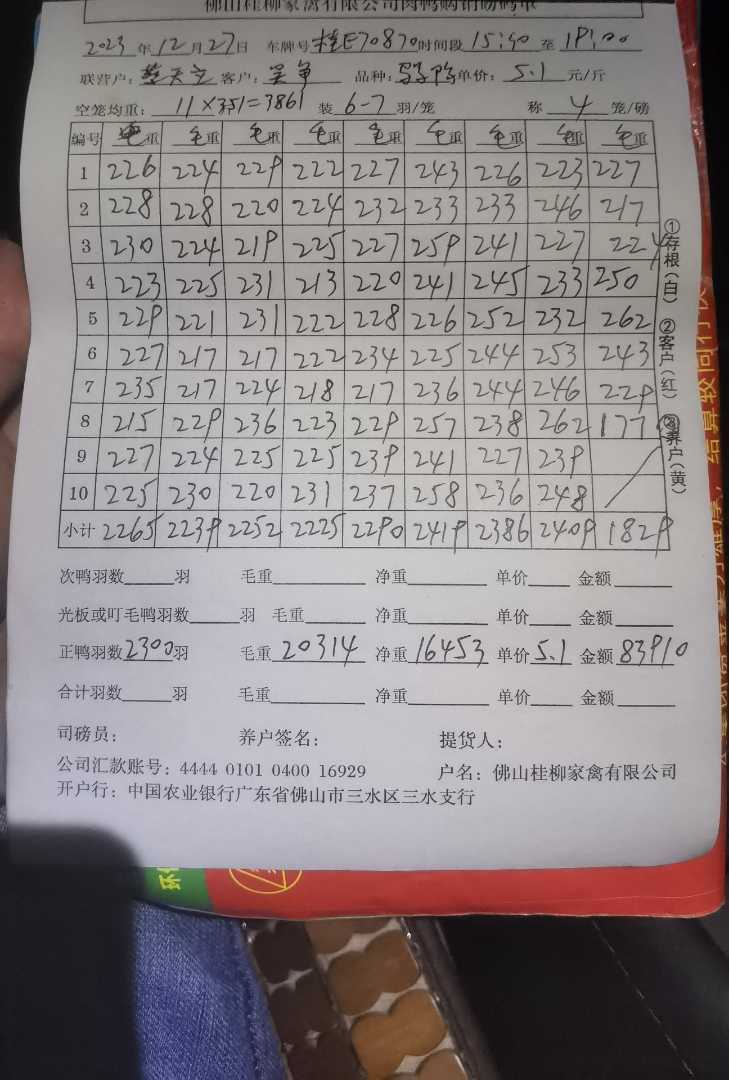 佛山桂柳家禽有限公司肉鸭购销磅码单
2023年12月27日 车牌号桂E70870时间段15:40至19:00
联营户: 客户:吴争 品种: 单价:5.1元/斤
空笼均重:11×351=3861 装6-7羽/笼 称4笼/磅
编号 毛重 毛重 毛重 毛重 毛重 毛重 毛重 毛重 毛重
1 226 224 229 222 227 243 226 223 227
2 228 228 220 224 232 233 233 246 217
3 230 224 219 225 227 259 241 227 224
4 223 225 231 213 220 241 245 233 250
5 229 221 231 222 228 226 252 232 262
6 227 217 217 222 234 225 244 253 243
7 235 217 224 218 217 236 244 246 229
8 215 229 236 223 229 257 238 262 177
9 227 224 225 225 239 241 227 239
10 225 230 220 231 237 258 236 248
小计 2265 2239 2252 2225 2290 2419 2386 2409 1829
①存根(白) ②客户(红) ③养户(黄)
次鸭羽数 羽 毛重 净重 单价 金额
光板或叮毛鸭羽数 羽 毛重 净重 单价 金额
正鸭羽数2300羽 毛重20314 净重16453 单价5.1 金额83910
合计羽数 羽 毛重 净重 单价 金额
司磅员: 养户签名: 提货人:
公司汇款账号:4444 0101 0400 16929 户名:佛山桂柳家禽有限公司
开户行:中国农业银行广东省佛山市三水区三水支行
环